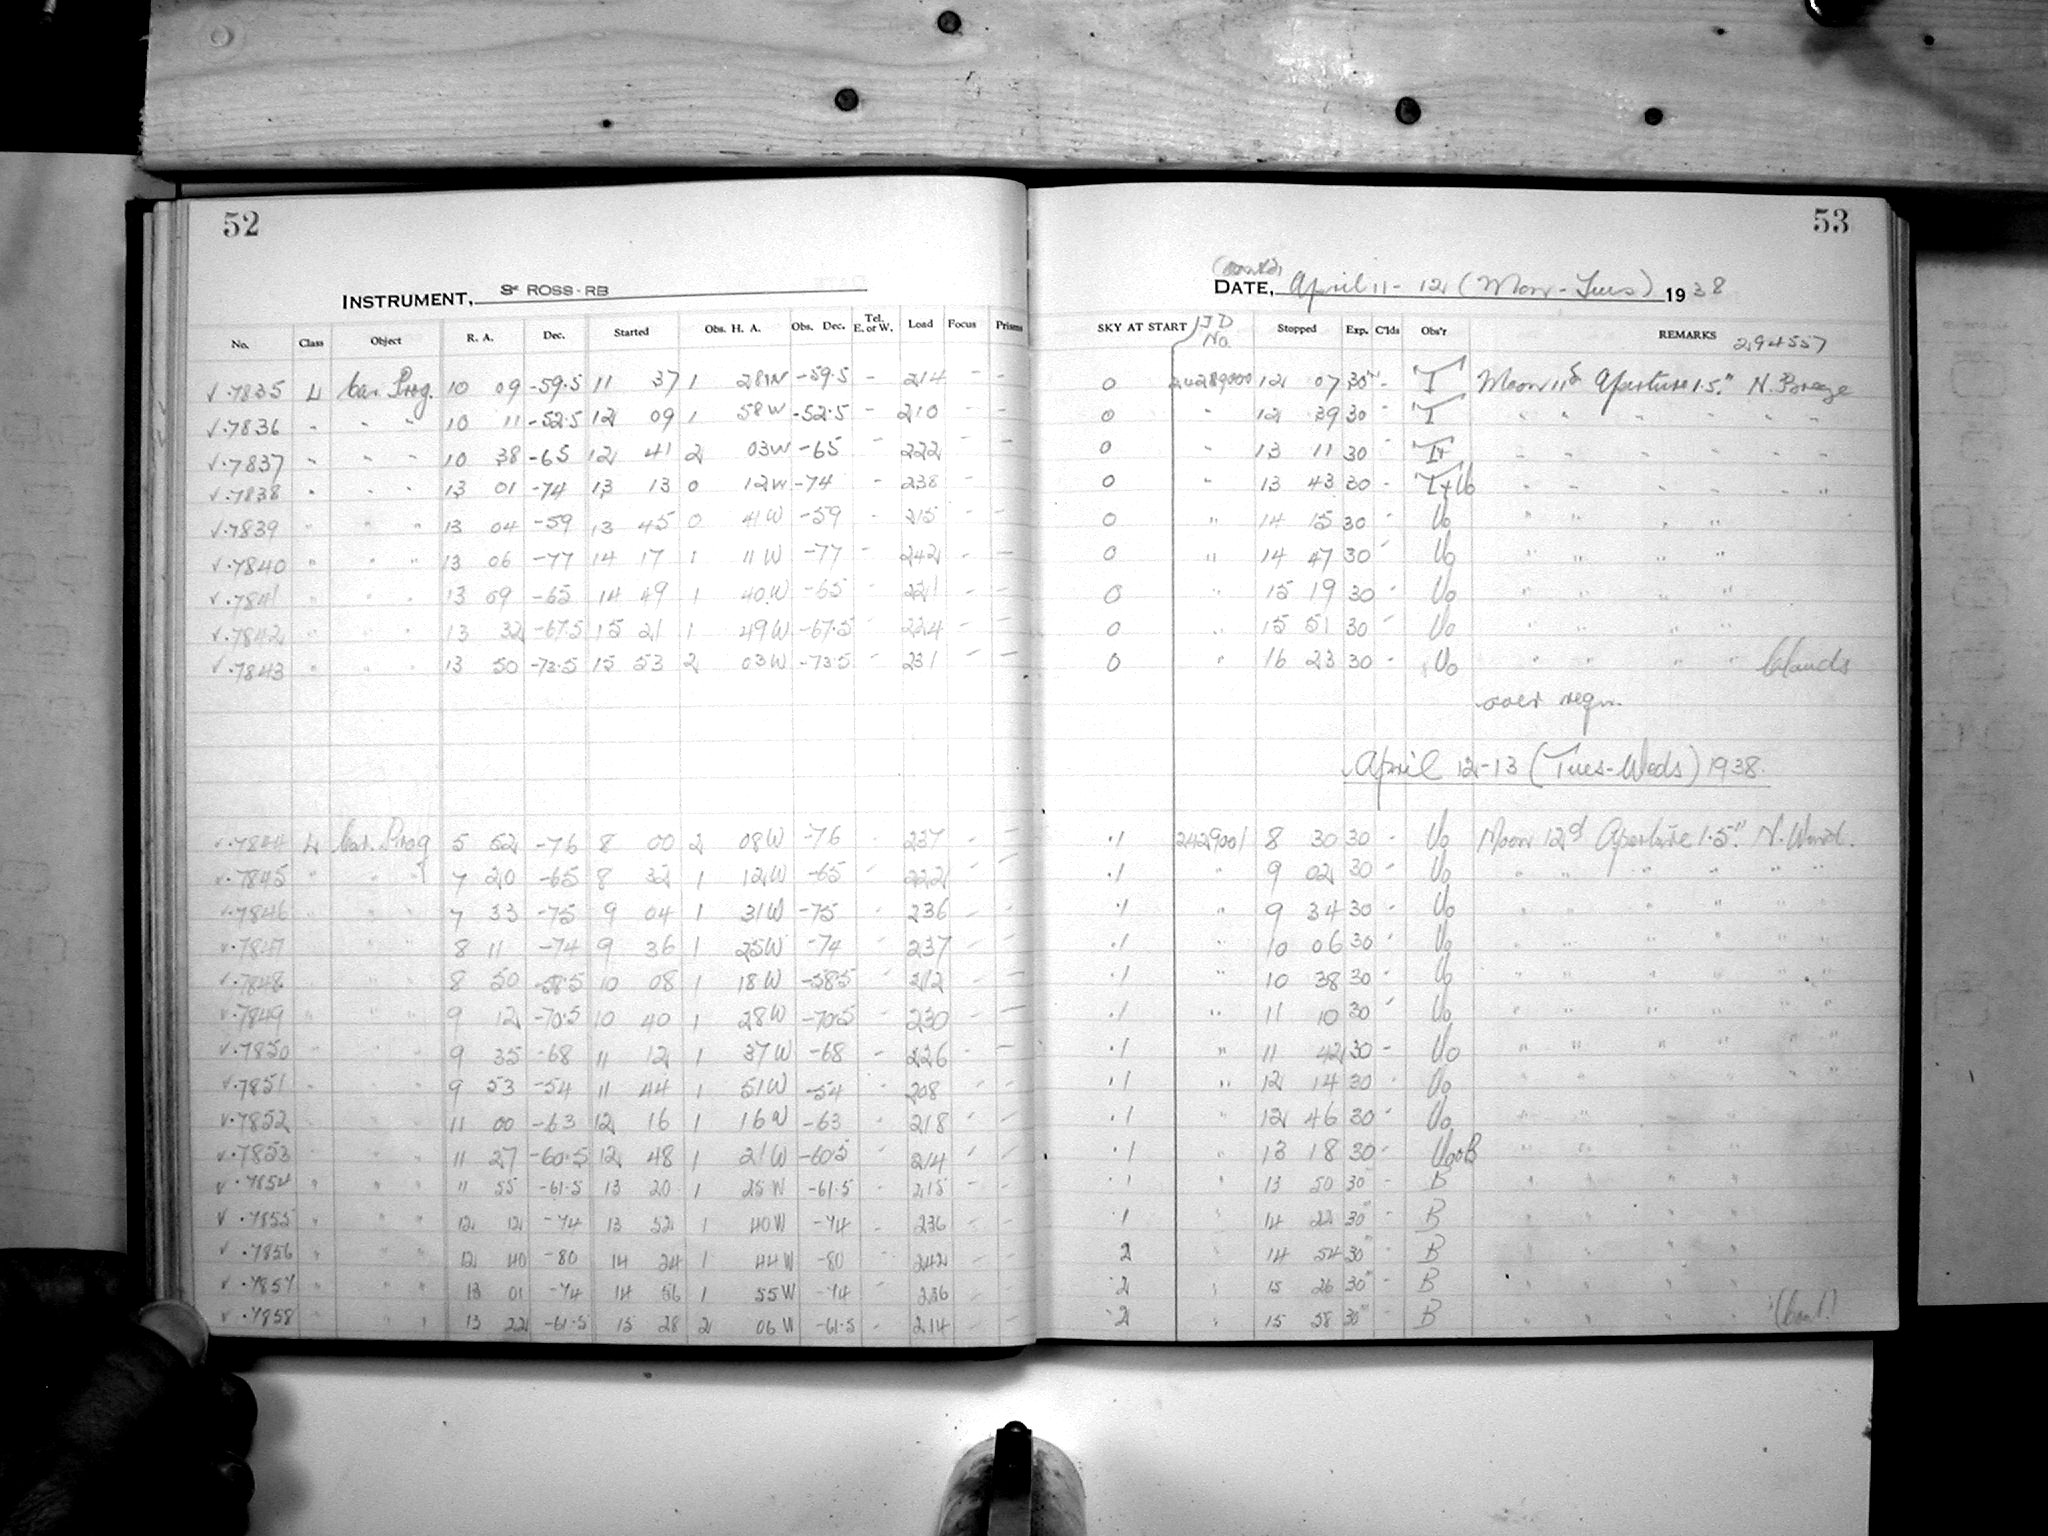 52
INSTRUMENT, ROSS-RB
No. Class Object R. A. Dec. Started Obs. H. A. Obs. Dec. Tel. E. or W. Load Focus Prisms
√ .7835 L Car. Prog. 10 09 -59.5 11 37 1 28W -59.5 - 214 - -
√ .7836 " " " 10 11 -52.5 12 09 1 58W -52.5 - 210 - -
√ .7837 " " " 10 38 -65 12 41 2 03W -65 - 222 - -
√ .7838 " " " 13 01 -74 13 13 0 12W -74 - 238 - -
√ .7839 " " " 13 04 -59 13 45 0 41W -59 - 215 - -
√ .7840 " " " 13 06 -77 14 17 1 11W -77 - 242 - -
√ .7841 " " " 13 09 -65 14 49 1 40W -65 - 221 - -
√ .7842 " " " 13 32 -67.5 15 21 1 49W -67.5 - 224 - -
√ .7843 " " " 13 50 -73.5 15 53 2 03W -73.5 - 231 - -
√ .7844 L Car. Prog 5 52 -76 8 00 2 08W -76 - 237 - -
√ .7845 " " " 7 20 -65 8 32 1 12W -65 - 222 - -
√ .7846 " " " 7 33 -75 9 04 1 31W -75 - 236 - -
√ .7847 " " " 8 11 -74 9 36 1 25W -74 - 237 - -
√ .7848 " " " 8 50 -58.5 10 08 1 18W -58.5 - 212 - -
√ .7849 " " " 9 12 -70.5 10 40 1 28W -70.5 - 230 - -
√ .7850 " " " 9 35 -68 11 12 1 37W -68 - 226 - -
√ .7851 " " " 9 53 -54 11 44 1 51W -54 - 208 - -
√ .7852 " " " 11 00 -63 12 16 1 16W -63 - 218 - -
√ .7853 " " " 11 27 -60.5 12 48 1 21W -60.5 - 214 - -
√ .7854 " " " 11 55 -61.5 13 20 1 25W -61.5 - 215 - -
√ .7855 " " " 12 12 -74 13 52 1 40W -74 - 236 - -
√ .7856 " " " 12 40 -80 14 24 1 44W -80 - 242 - -
√ .7857 " " " 13 01 -74 14 56 1 55W -74 - 236 - -
√ .7858 " " " 13 22 -61.5 15 28 2 06W -61.5 - 214 - -
53
(contd)
DATE, April 11-12 (Mon-Tues) 1938
SKY AT START JD No. Stopped Exp. C'lds Obs'r REMARKS 294557
0 2428900 12 07 30m - T Moon 11d Aperture 1.5" N. Breeze
0 " 12 39 30 - T " " " " "
0 " 13 11 30 - " " " " "
0 " 13 43 30 - " " " " "
0 " 14 15 30 - Uo " " " "
0 " 14 47 30 - Uo " " " "
0 " 15 19 30 - Uo " " " "
0 " 15 51 30 - Uo " " " "
0 " 16 23 30 - Uo " " " " Clouds
over regn.
April 12-13 (Tues-Weds) 1938.
.1 2429001 8 30 30 - Uo Moon 12d Aperture 1.5". N. Wind.
.1 " 9 02 30 - Uo " " " " "
.1 " 9 34 30 - Uo " " " " "
.1 " 10 06 30 - Uo " " " " "
.1 " 10 38 30 - Uo " " " " "
.1 " 11 10 30 - Uo " " " " "
.1 " 11 42 30 - Uo " " " " "
.1 " 12 14 30 - Uo " " " " "
.1 " 12 46 30 - Uo " " " "
.1 " 13 18 30 - UooB " " " "
.1 " 13 50 30 - B " " " "
.1 " 14 22 30 - B " " " "
2 " 14 54 30 - B " " " "
.2 " 15 26 30 - B " " " "
.2 " 15 58 30 - B " " " "